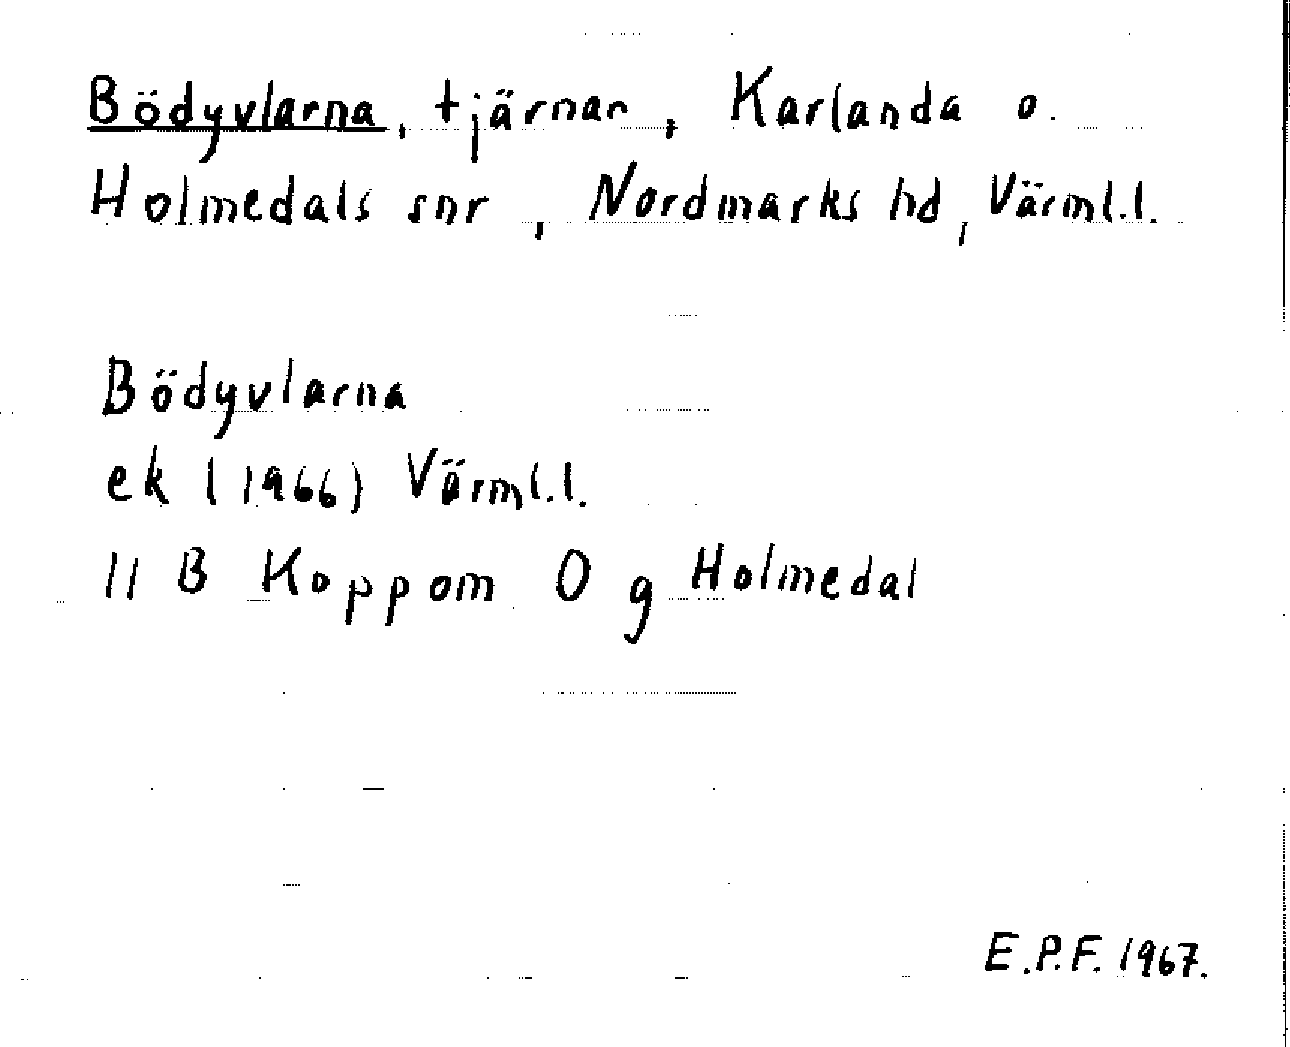 Bödyvlarna, tjärnar, Karlanda o.
Holmedals snr, Nordmarks hd, Värml.l.
Bödyvlarna
ek (1966) Värml.l.
11 B Koppom 0 g Holmedal
E.P.F. 1967.